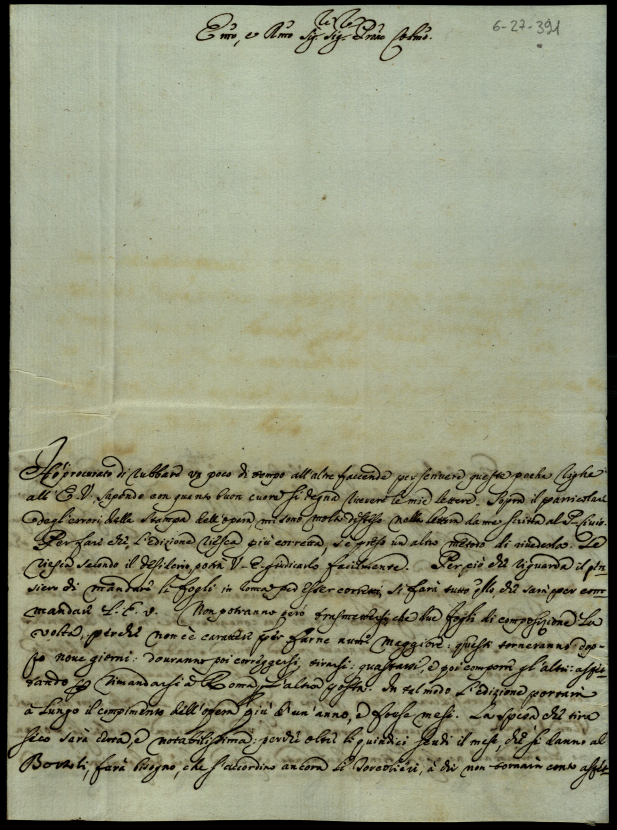 6-27-391
Emo, e Rmo Sig. Sig. Prone Colmo.
Hò procurato di rubbare un poco di tempo all'altre faccende per scrivere queste poche righe
all'E.V. sapendo con quanto buon cuore si degna ricevere le mie lettere. Sopra il particolare
degl'errori della stampa dell'opera mi sono molto disteso nella lettera da me scritta al
Per fare che l'edizione riesca più corretta, si è preso un altro metodo di rivederla. Se
riesca secondo il desiderio, potrà V.E. giudicarlo facilmente. Per più che riguarda il pen-
siero di mandare li fogli in Roma per esser corretti, si farà tutto quello che sarà per com-
mandare l'E.V. Non potranno però trasmettersi che due fogli di composizione la
volta, perchè non c'è carattere per farne num. maggiore: questi torneranno dop-
po nove giorni: dovranno poi correggersi, tirarsi: guastarsi, e poi comporre gl'altri: aspet-
tando rimandarsi à Roma l'altra posta. In tal modo l'edizione porterà
à lungo il compimento dell'opera più d'un'anno, e forse mesi. La spesa che tira
seco sarà certa, e notabilissima: perchè oltre li quindici scudi il mese, che si danno al
Bortoli, farà bisogno, che s'accordino ancora li Torcolieri, à chi non tornarà conto aspet-